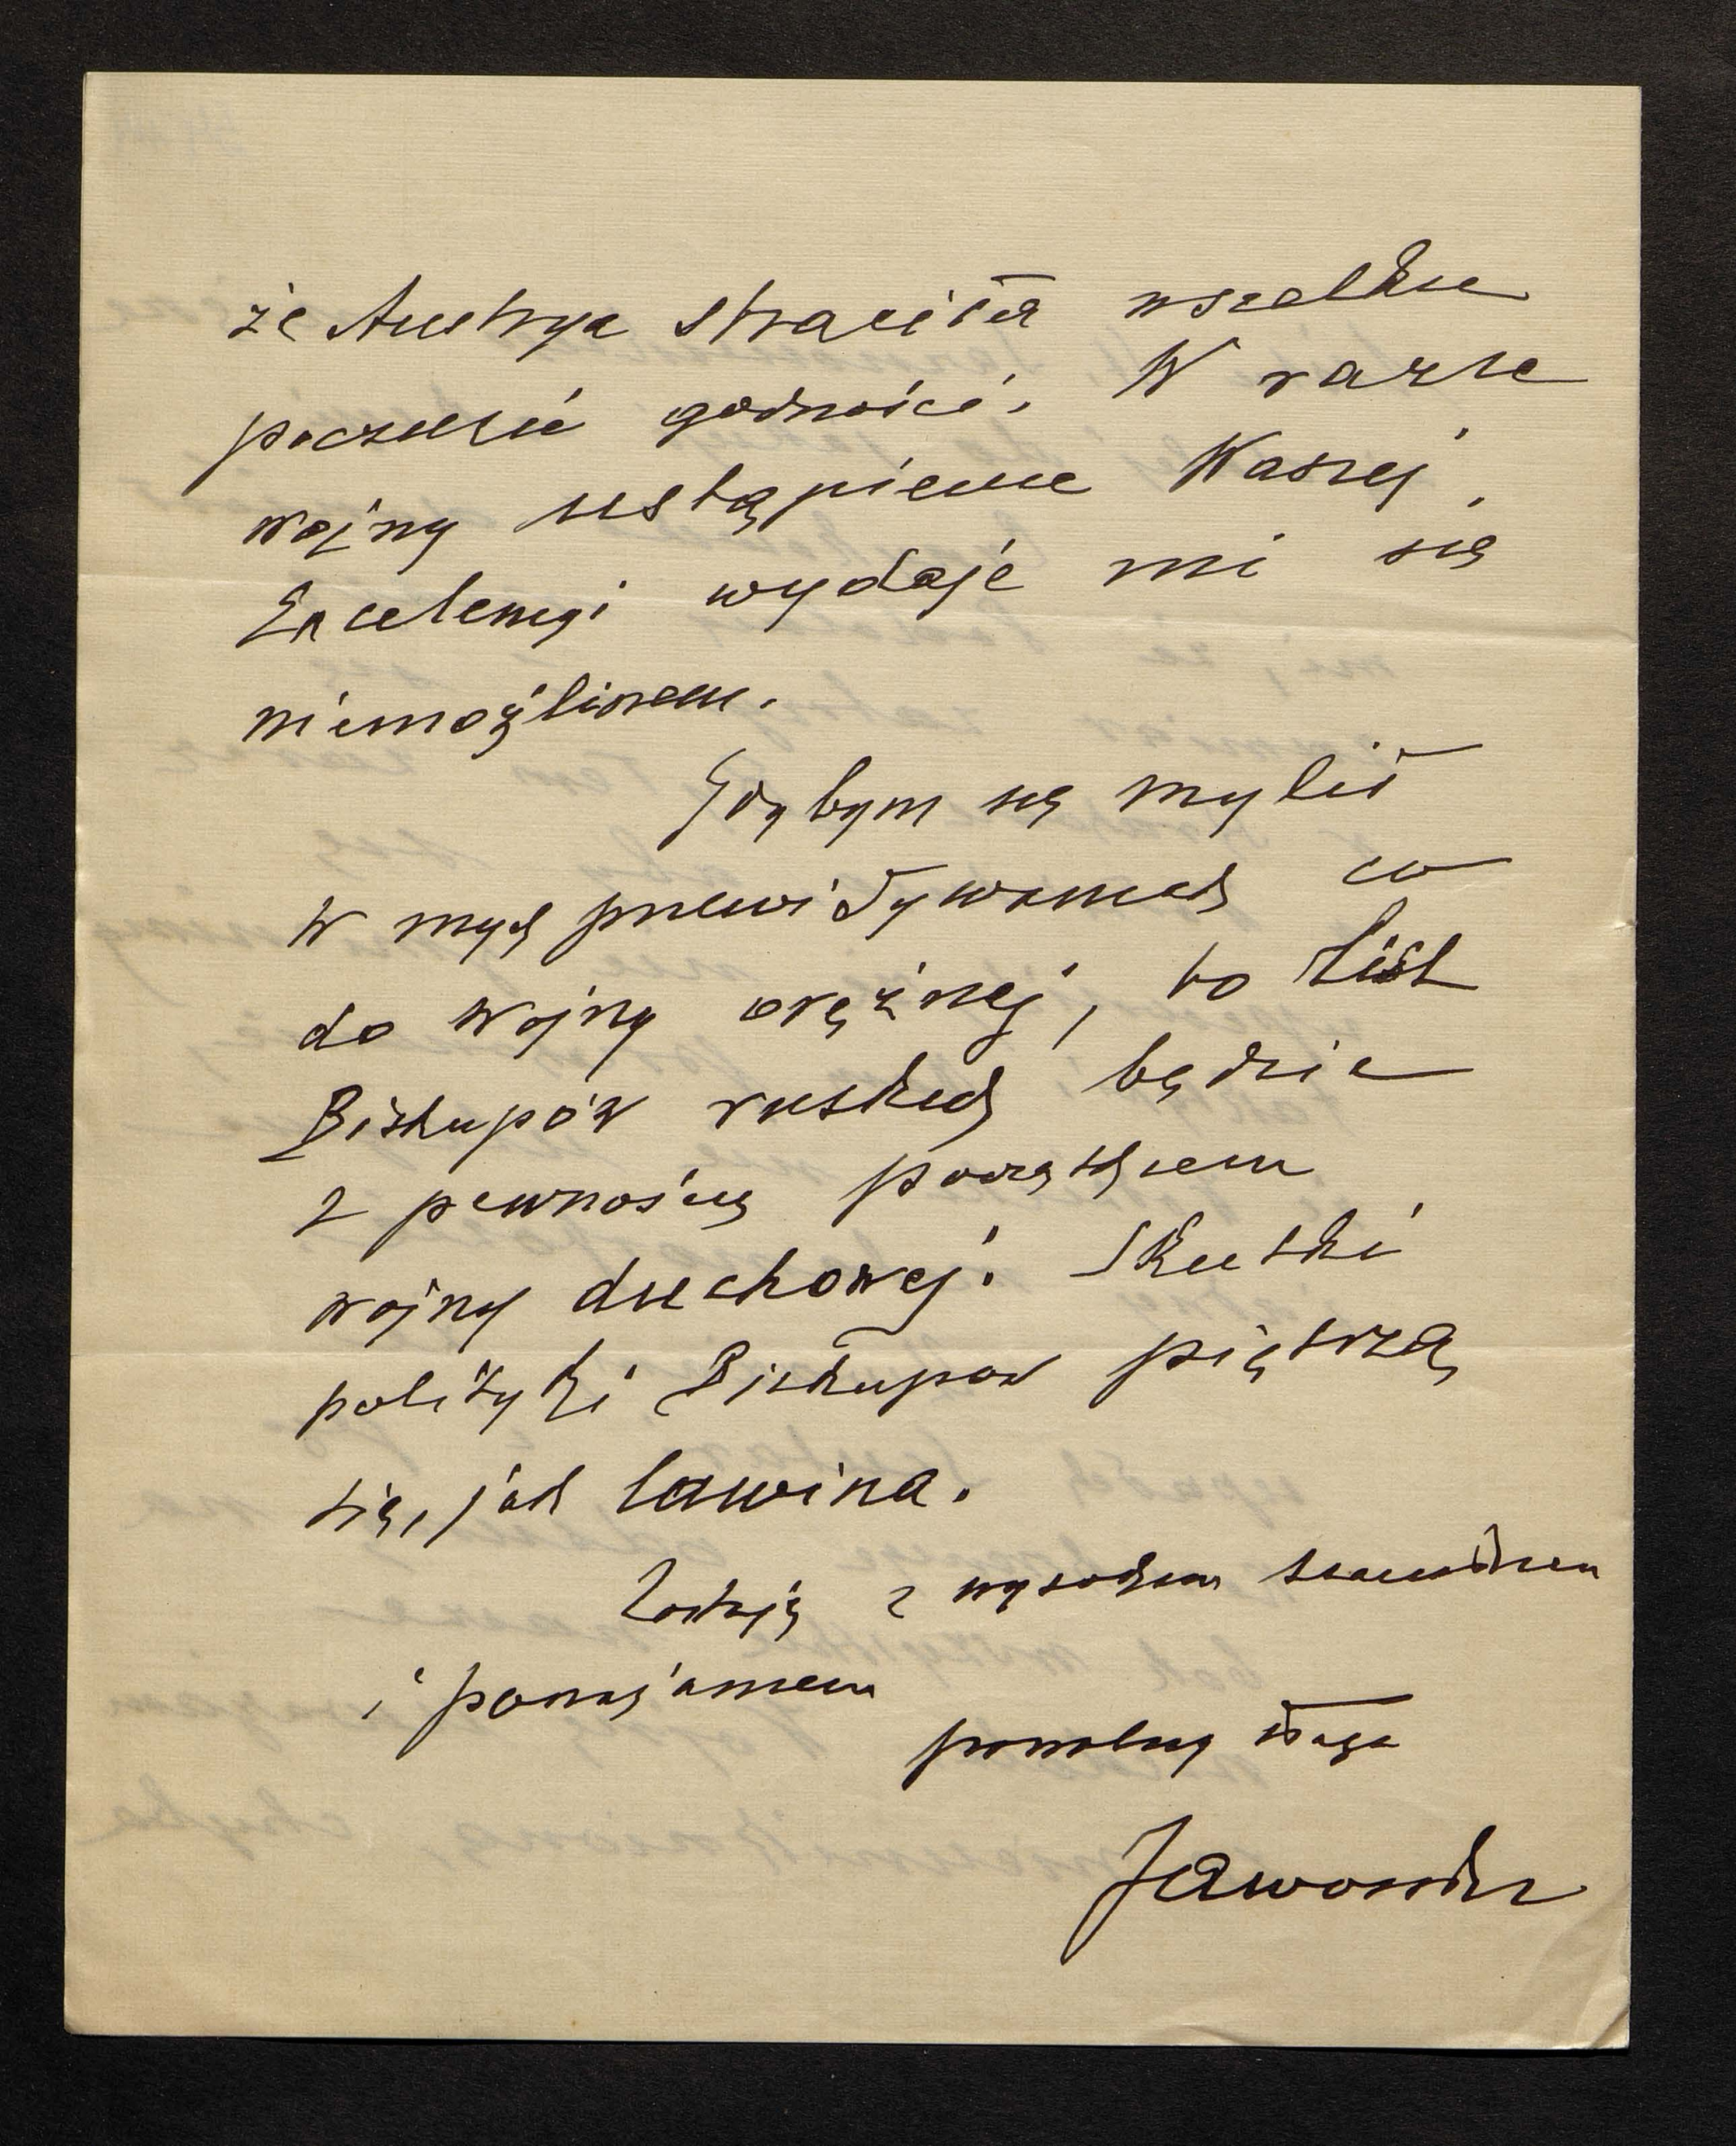 że Austrya straciła wszelkie
poczucie godności. W razie
wojny ustąpienie Waszej
Excelencyi wydaje mi się
niemożliwem.
Gdybym się mylił
w mych przewidywaniach co
do wojny orężnej, to List
Biskupów ruskich będzie
z pewnością początkiem
wojny duchowej. Skutki
polityki Biskupów piętrzą
się, jak lawina.
Zostaję z wysokim szacunkiem
i poważaniem
powolny sługa
Jaworski